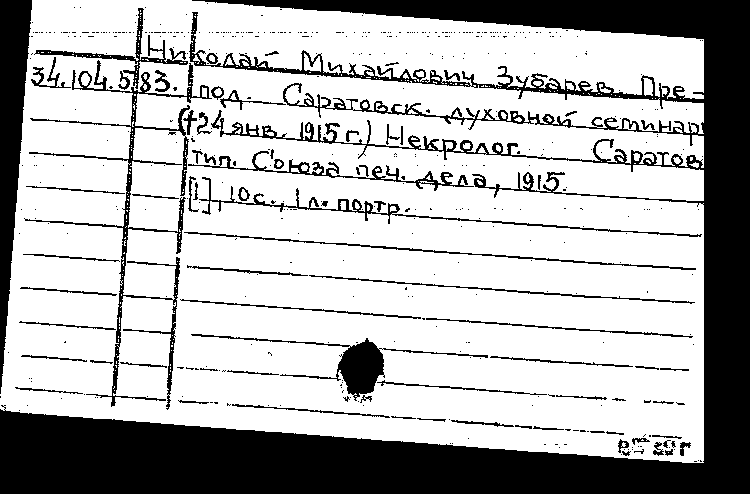 Николай Михайлович Зубарев. Пре-
34.104.583. под. Саратовск. духовной семинар
(†24 янв. 1915 г.) Некролог. Саратов
тип. Союза печ. дела, 1915.
[1], 10 с., 1 л. портр.